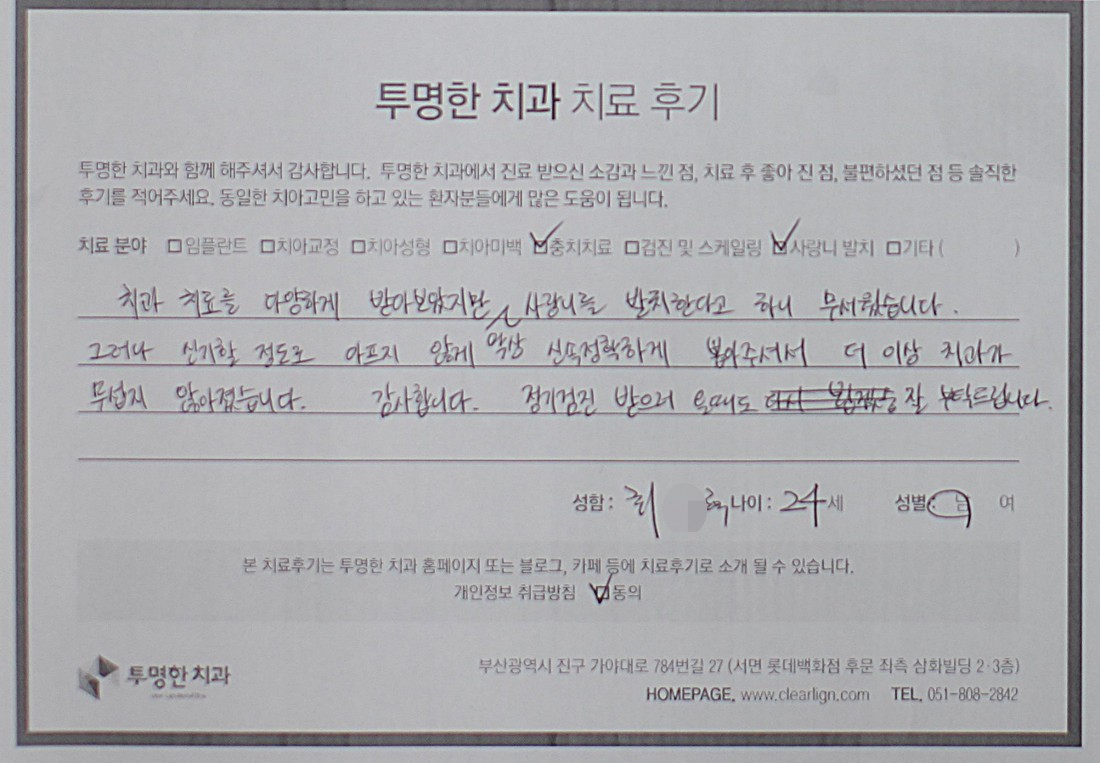 투명한 치과 치료 후기
투명한 치과와 함께 해주셔서 감사합니다. 투명한 치과에서 진료 받으신 소감과 느낀 점, 치료 후 좋아 진 점, 불편하셨던 점 등 솔직한
후기를 적어주세요. 동일한 치아고민을 하고 있는 환자분들에게 많은 도움이 됩니다.
치료 분야 □임플란트 □치아교정 □치아성형 □치아미백 ☑충치치료 □검진 및 스케일링 ☑사랑니 발치 □기타 ( )
치과 치료를 다양하게 받아보았지만 사랑니를 발치한다고 하니 무서웠습니다.
그러나 신기할 정도로 아프지 않게 막상 신속정확하게 뽑아주셔서 더 이상 치과가
무섭지 않아졌습니다. 감사합니다. 정기검진 받으러 올때도 잘 부탁드립니다.
성함 : 나이 : 24세 성별 : 남 여
본 치료후기는 투명한 치과 홈페이지 또는 블로그, 카페 등에 치료후기로 소개 될 수 있습니다.
개인정보 취급방침 ☑동의
투명한 치과
부산광역시 진구 가야대로 784번길 27 (서면 롯데백화점 후문 좌측 삼화빌딩 2·3층)
HOMEPAGE. www.clearlign.com TEL. 051-808-2842